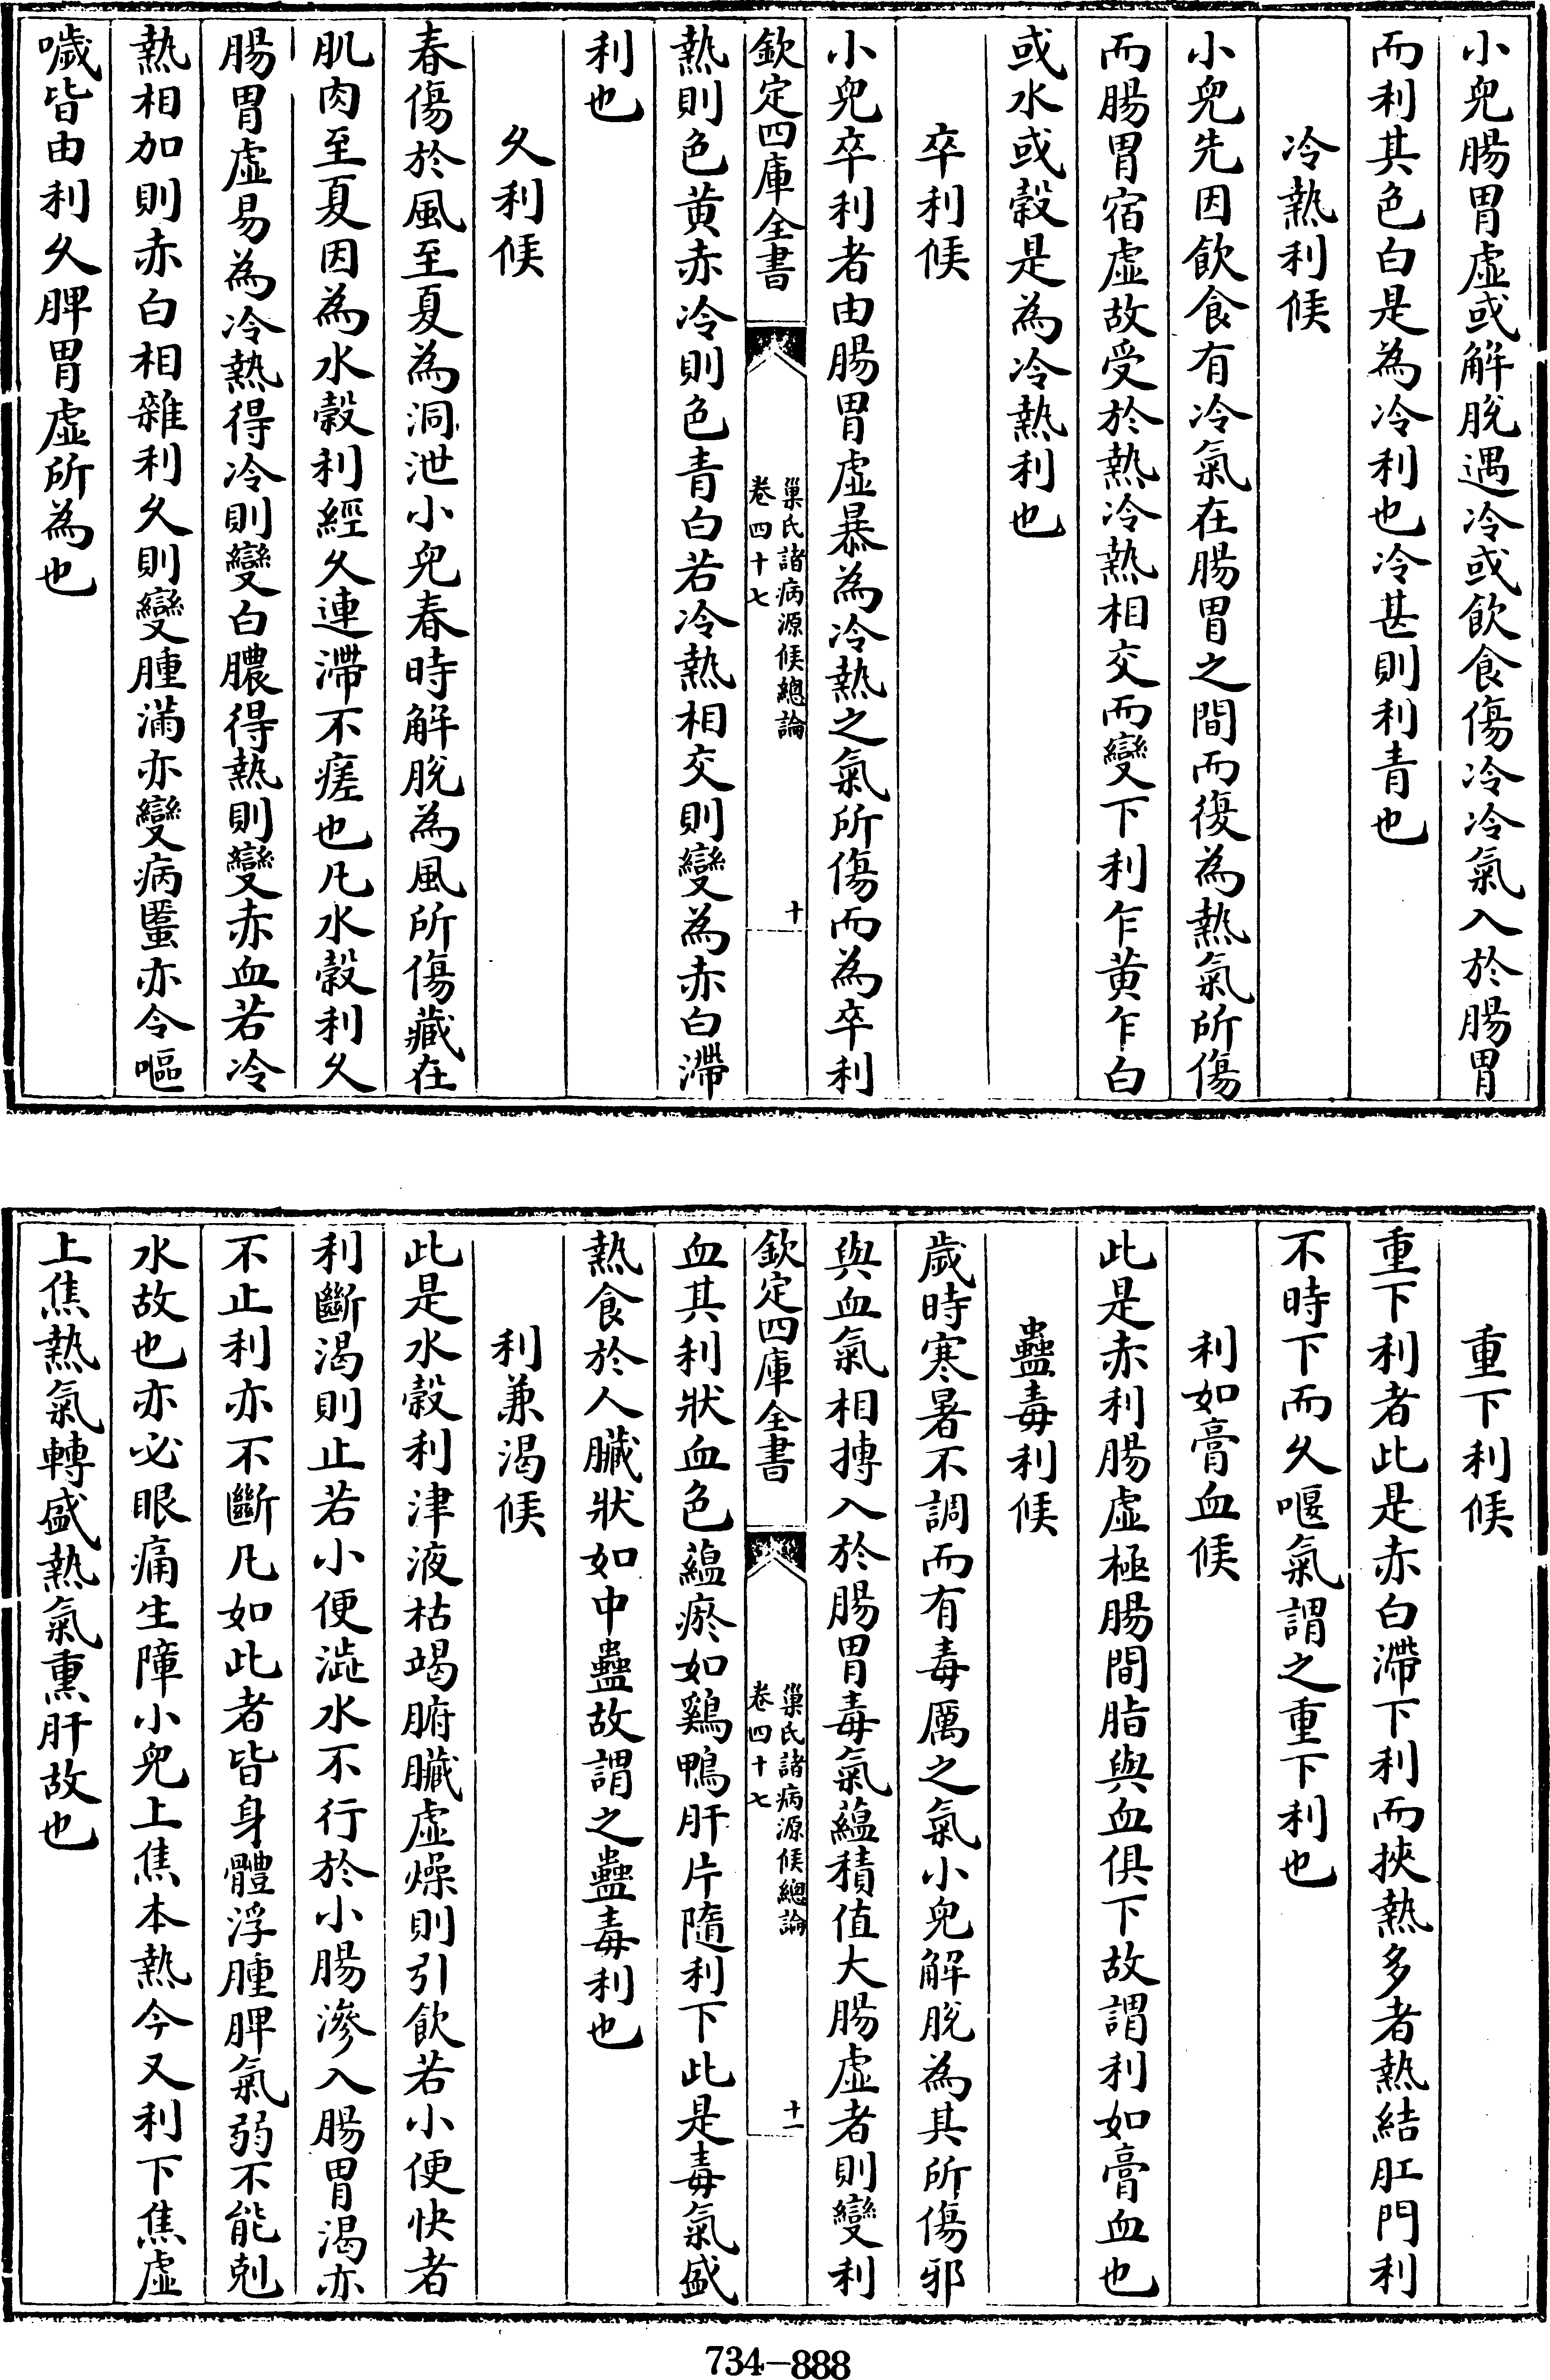 小兒腸胃虛或解脫遇冷或飲食傷冷冷氣入於腸胃
而利其色白是為冷利也冷甚則利青也
冷熱利候
小兒先因飲食有冷氣在腸胃之間而復為熱氣所傷
而腸胃宿虛故受於熱冷熱相交而變下利乍黃乍白
或水或穀是為冷熱利也
卒利候
小兒卒利者由腸胃虛暴為冷熱之氣所傷而為卒利
欽定四庫全書
巢氏諸病源候總論
卷四十七
十
熱則色黃赤冷則色青白若冷熱相交則變為赤白滯
利也
久利候
春傷於風至夏為洞泄小兒春時解脫為風所傷藏在
肌肉至夏因為水穀利經久連滯不瘥也凡水穀利久
腸胃虛易為冷熱得冷則變白膿得熱則變赤血若冷
熱相加則赤白相雜利久則變腫滿亦變病䘌亦令嘔
噦皆由利久脾胃虛所為也
重下利候
重下利者此是赤白滯下利而挾熱多者熱結肛門利
不時下而久嘔氣謂之重下利也
利如膏血候
此是赤利腸虛極腸間脂與血俱下故謂利如膏血也
蠱毒利候
歲時寒暑不調而有毒厲之氣小兒解脫為其所傷邪
與血氣相摶入於腸胃毒氣蘊積值大腸虛者則變利
欽定四庫全書
巢氏諸病源候總論
卷四十七
十一
血其利狀血色蘊瘀如鷄鴨肝片隨利下此是毒氣盛
熱食於人臟狀如中蠱故謂之蠱毒利也
利兼渴候
此是水穀利津液枯竭腑臟虛燥則引飲若小便快者
利斷渴則止若小便澁水不行於小腸滲入腸胃渴亦
不止利亦不斷凡如此者皆身體浮腫脾氣弱不能剋
水故也亦必眼痛生障小兒上焦本熱今又利下焦虛
上焦熱氣轉盛熱氣熏肝故也
734-888